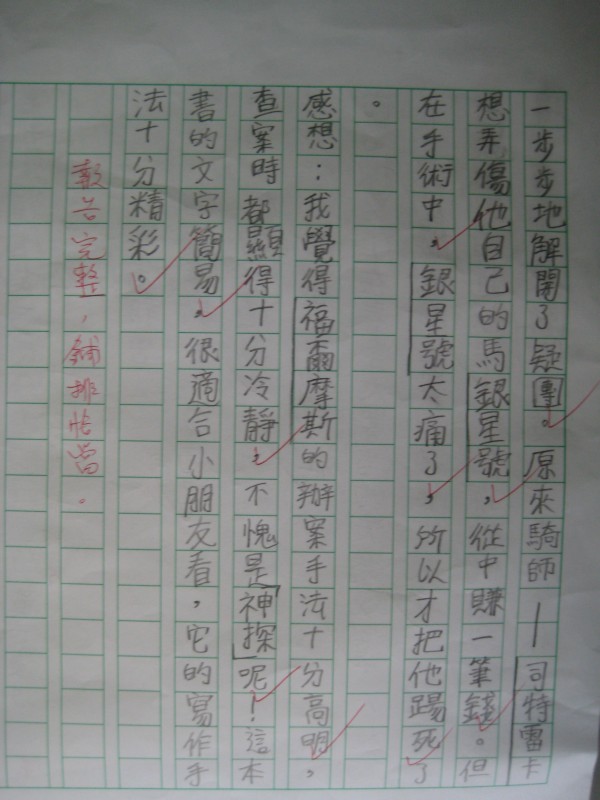 一步步地解開了疑團。原來騎師——司特雷卡
想弄傷他自己的馬銀星號，從中賺一筆錢。但
在手術中，銀星號太痛了，所以才把他踢死了
。
感想：我覺得福爾摩斯的辦案手法十分高明，
查案時都顯得十分冷靜，不愧是「神探」呢！這本
書的文字簡易，很適合小朋友看，它的寫作手
法十分精彩。
報告完整，鋪排恰當。